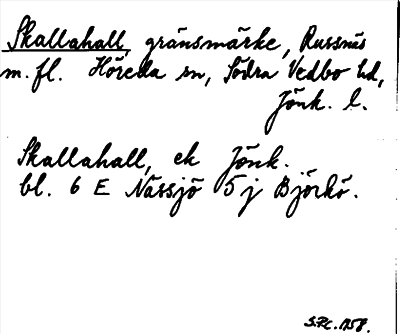 Skallahall, gränsmärke, Russnäs
m.fl. Höreda sn, Södra Vedbo hd,
Jönk. l.
Skallahall, ek Jönk.
bl. 6 E Nässjö 5 j Björkö.
1958.